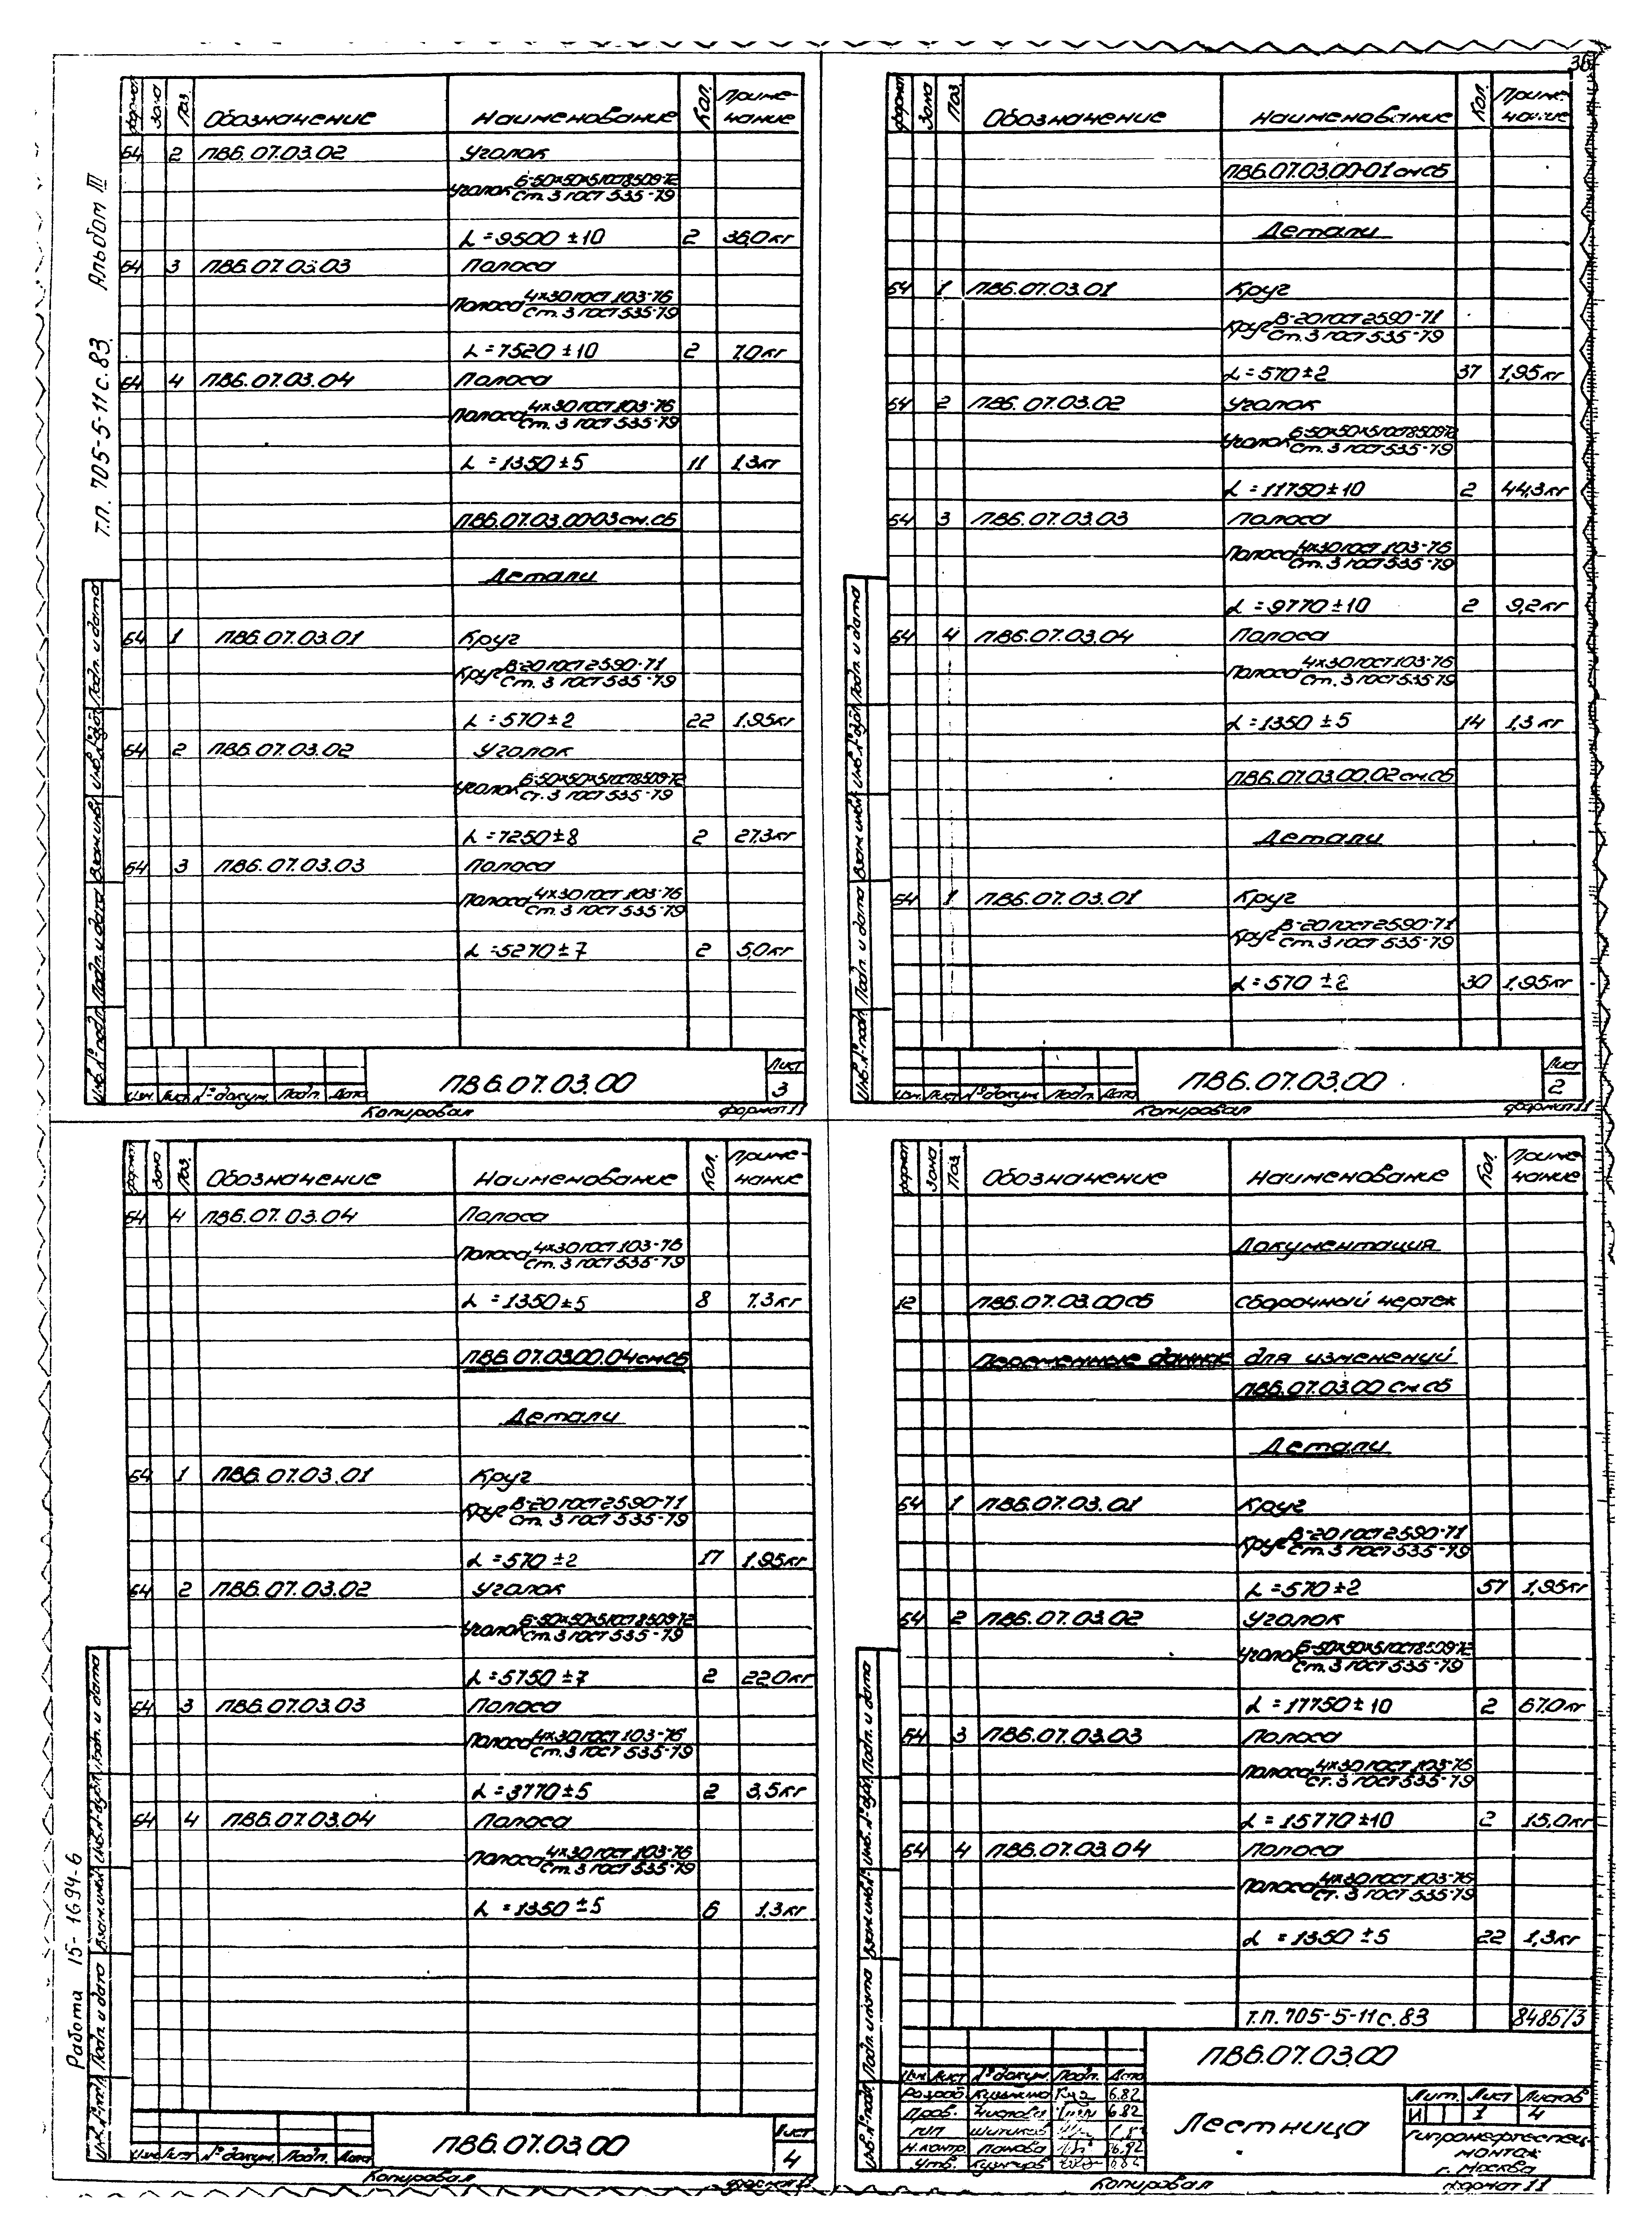 36
Альбом III
т.п. 705-5-11 с. 83
формат Зона Поз. Обозначение Наименование Кол. Приме-
чание
64 2 ПВ6.07.03.02 Уголок
Уголок Б-50х50х5 ГОСТ 8509-72
Ст. 3 ГОСТ 535-79
L = 9500 ±10 2 36,0кг
64 3 ПВ6.07.03.03 Полоса
Полоса 4х30 ГОСТ 103-76
Ст. 3 ГОСТ 535-79
L = 7520 ±10 2 7,0кг
64 4 ПВ6.07.03.04 Полоса
Полоса 4х30 ГОСТ 103-76
Ст. 3 ГОСТ 535-79
L = 1350 ±5 11 1,3кг
ПВ6.07.03.00-03 см.сб
Детали
64 1 ПВ6.07.03.01 Круг
Круг В-20 ГОСТ 2590-71
Ст. 3 ГОСТ 535-79
L = 570 ±2 22 1,95кг
64 2 ПВ6.07.03.02 Уголок
Уголок Б-50х50х5 ГОСТ 8509-72
Ст. 3 ГОСТ 535-79
L = 7250 ±8 2 27,3кг
64 3 ПВ6.07.03.03 Полоса
Полоса 4х30 ГОСТ 103-76
Ст. 3 ГОСТ 535-79
L = 5270 ±7 2 5,0кг
Инв. № подл. Подп. и дата Взам. инв. № Инв. № дубл. Подп. и дата
Изм. Лист № докум. Подп. Дата
ПВ6.07.03.00
Лист
3
Копировал формат 11
формат Зона Поз. Обозначение Наименование Кол. Приме-
чание
ПВ6.07.03.00-01 см сб
Детали
64 1 ПВ6.07.03.01 Круг
Круг В-20 ГОСТ 2590-71
Ст. 3 ГОСТ 535-79
L = 570 ±2 37 1,95кг
64 2 ПВ6.07.03.02 Уголок
Уголок Б-50х50х5 ГОСТ 8509-72
Ст. 3 ГОСТ 535-79
L = 11750 ±10 2 44,3кг
64 3 ПВ6.07.03.03 Полоса
Полоса 4х30 ГОСТ 103-76
Ст. 3 ГОСТ 535-79
L = 9770 ±10 2 9,2кг
64 4 ПВ6.07.03.04 Полоса
Полоса 4х30 ГОСТ 103-76
Ст. 3 ГОСТ 535-79
L = 1350 ±5 14 1,3кг
ПВ6.07.03.00.02 см.сб
Детали
64 1 ПВ6.07.03.01 Круг
Круг В-20 ГОСТ 2590-71
Ст. 3 ГОСТ 535-79
L = 570 ±2 30 1,95кг
Инв. № подл. Подп. и дата Взам. инв. № Инв. № дубл. Подп. и дата
Изм. Лист № докум. Подп. Дата
ПВ6.07.03.00
Лист
2
Копировал формат 11
формат Зона Поз. Обозначение Наименование Кол. Приме-
чание
64 4 ПВ6.07.03.04 Полоса
Полоса 4х30 ГОСТ 103-76
Ст. 3 ГОСТ 535-79
L = 1350 ±5 8 1,3кг
ПВ6.07.03.00.04 см сб
Детали
64 1 ПВ6.07.03.01 Круг
Круг В-20 ГОСТ 2590-71
Ст. 3 ГОСТ 535-79
L = 570 ±2 17 1,95кг
64 2 ПВ6.07.03.02 Уголок
Уголок Б-50х50х5 ГОСТ 8509-72
Ст. 3 ГОСТ 535-79
L = 5750 ±7 2 22,0кг
64 3 ПВ6.07.03.03 Полоса
Полоса 4х30 ГОСТ 103-76
Ст. 3 ГОСТ 535-79
L = 3770 ±5 2 3,5кг
64 4 ПВ6.07.03.04 Полоса
Полоса 4х30 ГОСТ 103-76
Ст. 3 ГОСТ 535-79
L = 1350 ±5 6 1,3кг
Работа 15-1694-6
Инв. № подл. Подп. и дата Взам. инв. № Инв. № дубл. Подп. и дата
Изм. Лист № докум. Подп. Дата
ПВ6.07.03.00
Лист
4
Копировал формат 11
формат Зона Поз. Обозначение Наименование Кол. Приме-
чание
Документация
12 ПВ6.07.03.00 сб Сборочный чертеж
Переменные данные для изменений
ПВ6.07.03.00 см сб
Детали
64 1 ПВ6.07.03.01 Круг
Круг В-20 ГОСТ 2590-71
Ст. 3 ГОСТ 535-79
L = 570 ±2 57 1,95кг
64 2 ПВ6.07.03.02 Уголок
Уголок Б-50х50х5 ГОСТ 8509-72
Ст. 3 ГОСТ 535-79
L = 17750 ±10 2 67,0кг
64 3 ПВ6.07.03.03 Полоса
Полоса 4х30 ГОСТ 103-76
Ст. 3 ГОСТ 535-79
L = 15770 ±10 2 15,0кг
64 4 ПВ6.07.03.04 Полоса
Полоса 4х30 ГОСТ 103-76
Ст. 3 ГОСТ 535-79
L = 1350 ±5 22 1,3кг
т.п. 705-5-11 с. 83 8485/3
Инв. № подл. Подп. и дата Взам. инв. № Инв. № дубл. Подп. и дата
ПВ6.07.03.00
Изм Лист № докум. Подп. Дата
Разраб 6.82
Пров. Чистова 6.82
ГИП
Н.контр Панова 6.82
Утв.
Лестница
Лит. Лист Листов
И 1 4
Гипронефтеспец-
монтаж
г. Москва
Копировал формат 11